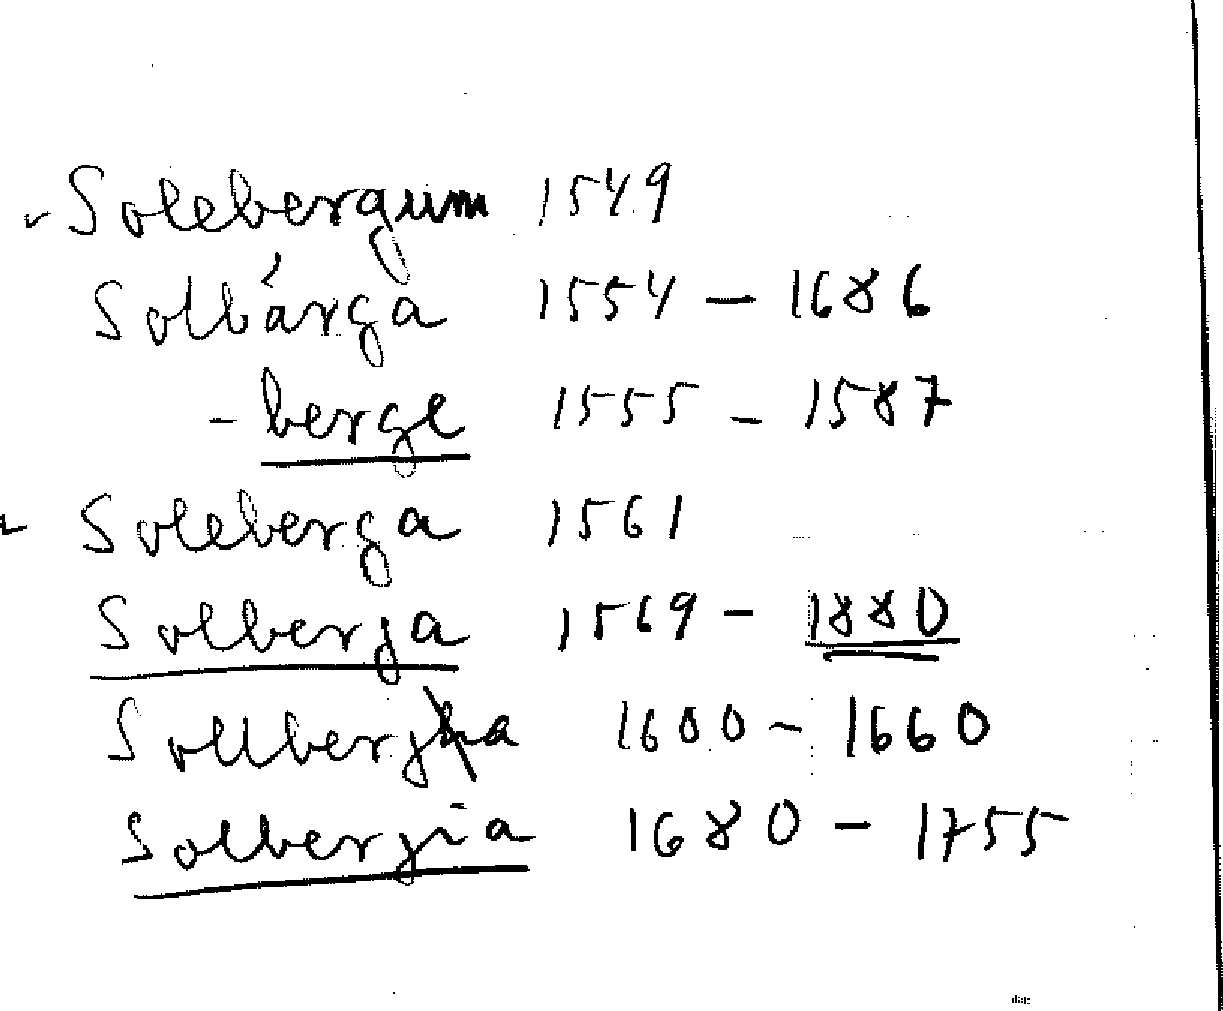 Solebergum 1549
Solbärga 1554 – 1686
- berge 1555 – 1587
Soleberga 1561
Solberga 1569 – 1880
Sollberga 1600 – 1660
Solbergia 1680 – 1755